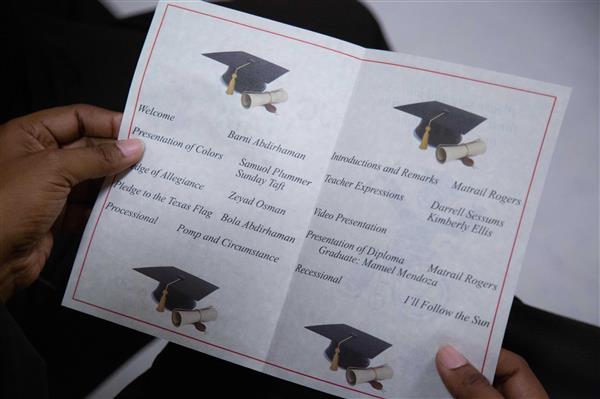 Welcome
Barni Abdirhaman
Presentation of Colors
Samuol Plummer
Sunday Taft
dge of Allegiance
Zeyad Osman
Pledge to the Texas Flag
Bola Abdirhaman
Processional
Pomp and Circumstance
Introductions and Remarks
Matrail Rogers
Teacher Expressions
Darrell Sessums
Kimberly Ellis
Video Presentation
Presentation of Diploma
Matrail Rogers
Graduate: Manuel Mendoza
Recessional
I'll Follow the Sun